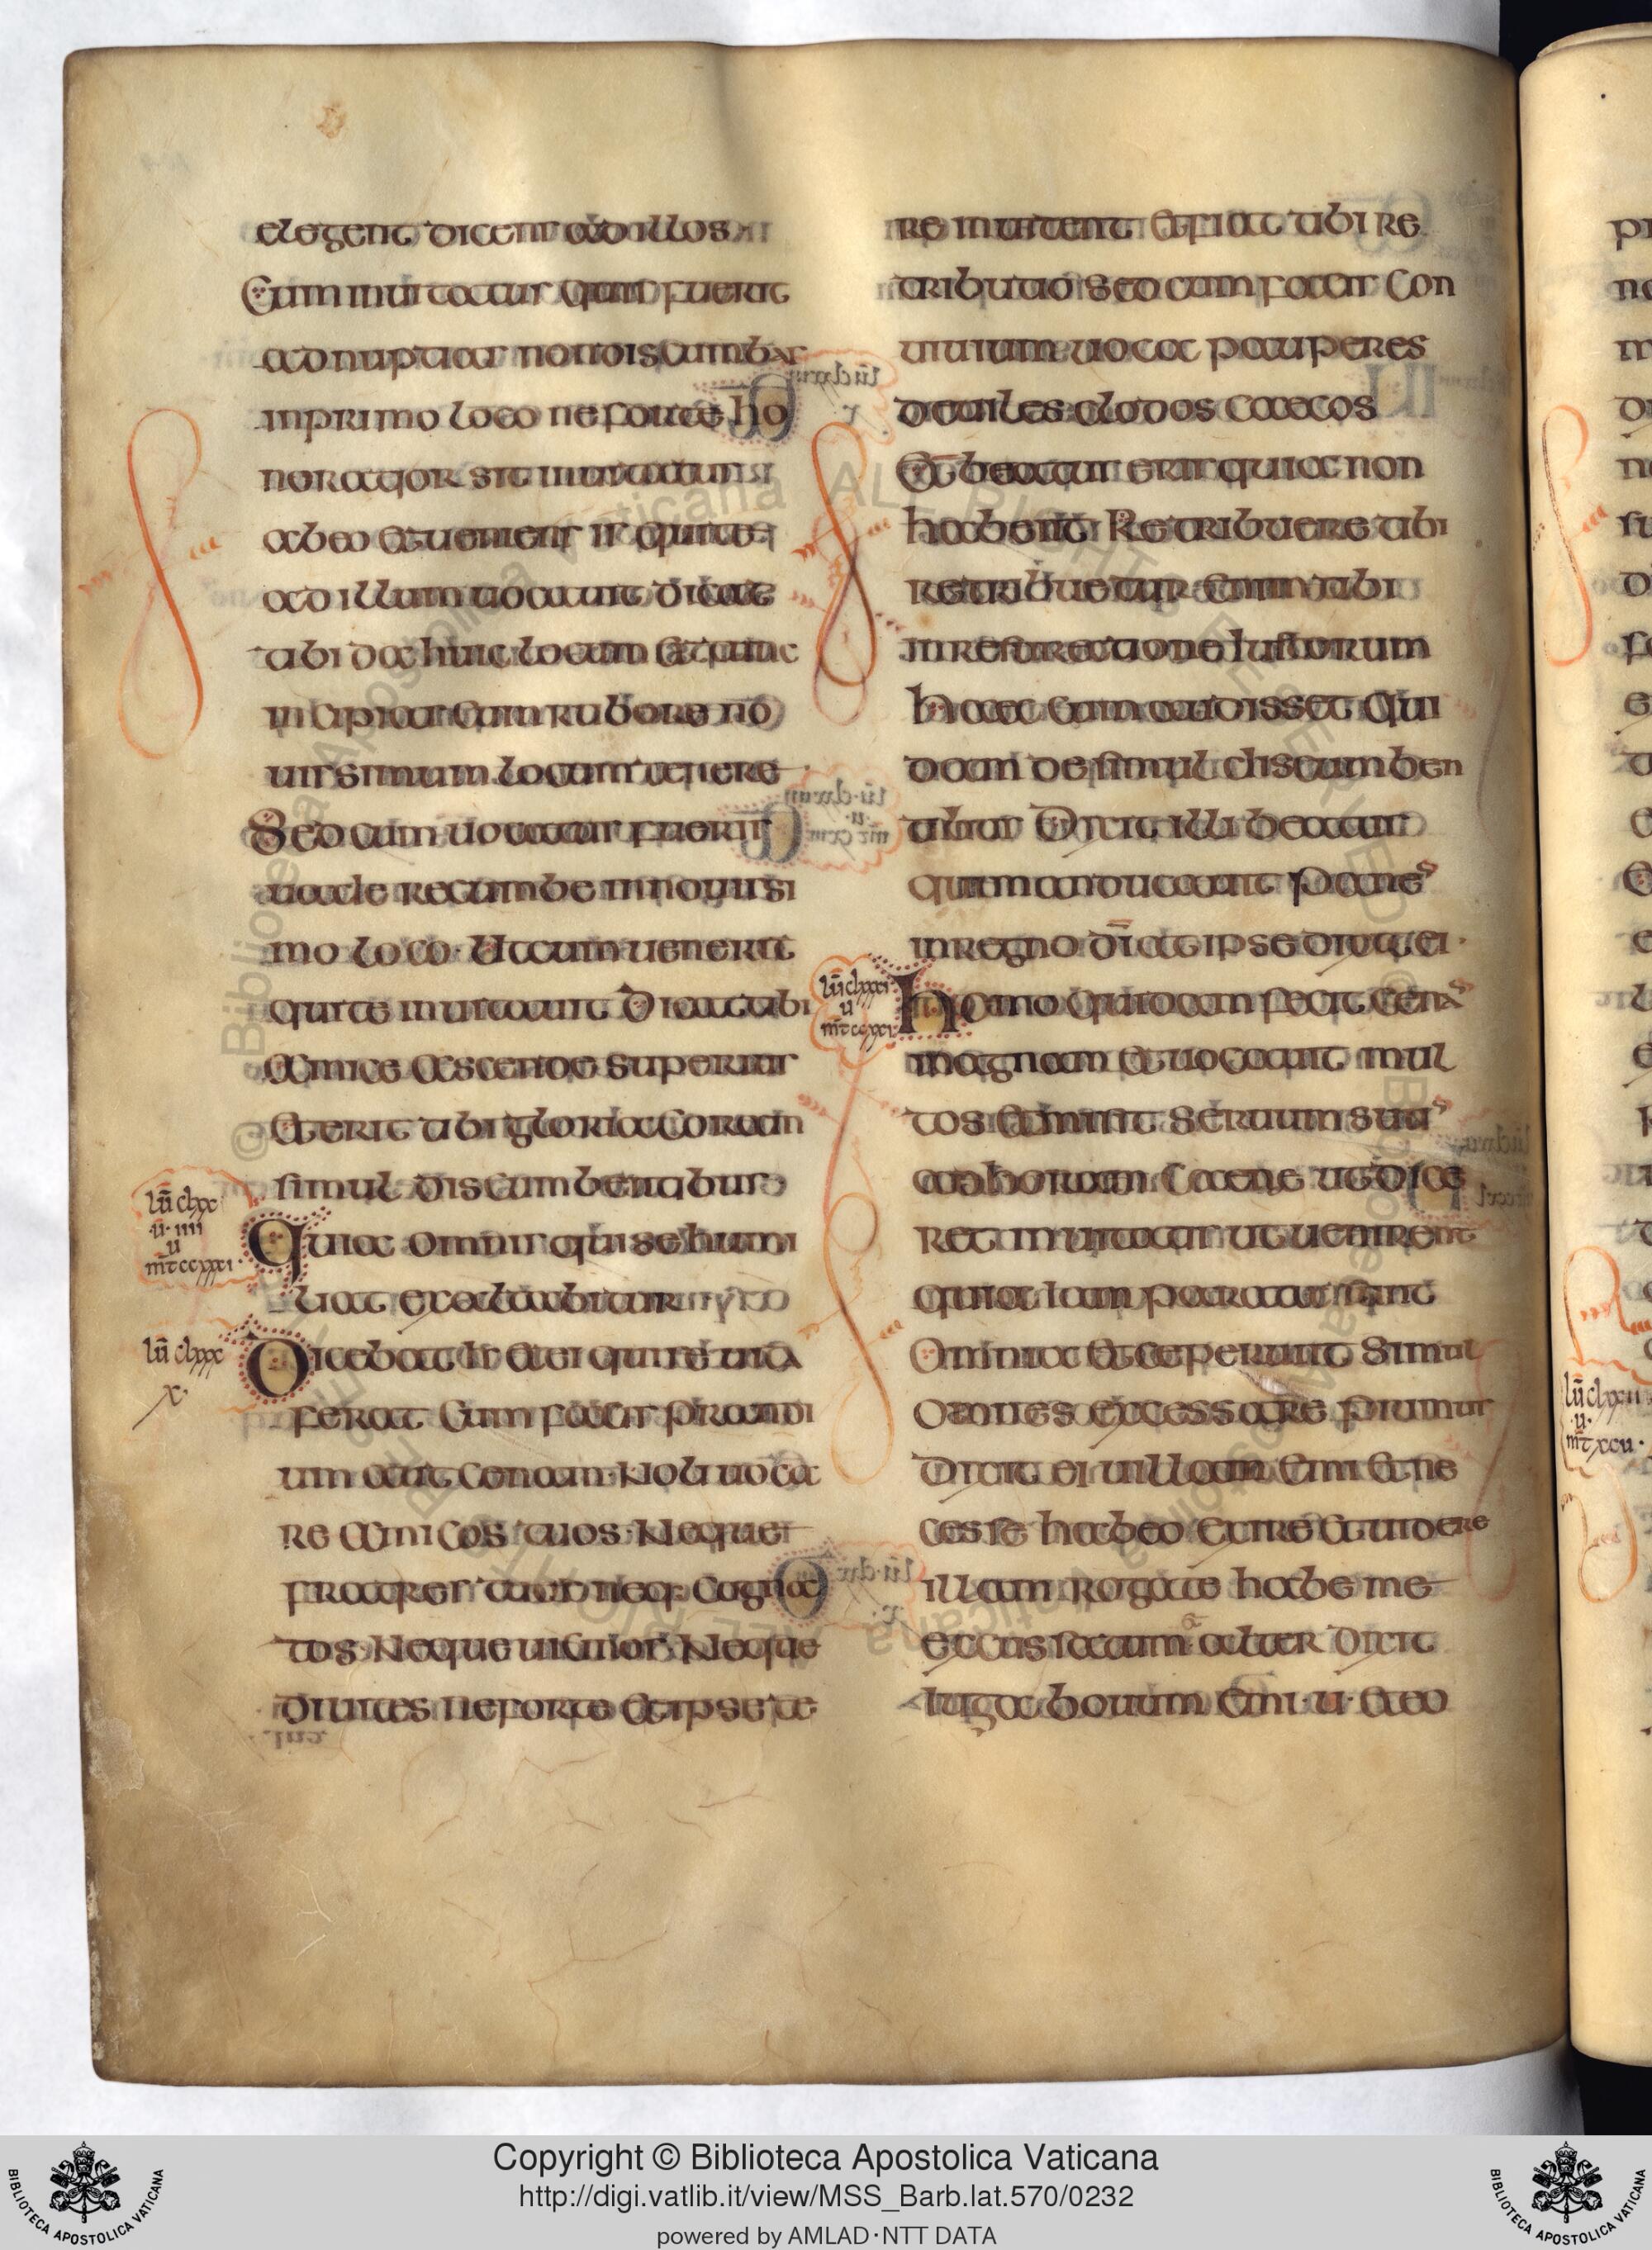 elegent dicens ad illos
Cum inuitatus quis fuerit
ad nuptias non discumbas
in primo loco ne forte ho
noratior sit inuitatus
ab eo et ueniens is qui te
ad illum uocauit dicat
tibi da huic locum et tunc
incipias cum rubore no
uissimum locum tenere
Sed cum uocatus fueris
uade recumbe in nouissi
mo loco. Ut cum uenerit
qui te inuitauit Dicat tibi
Amice ascende superius
et erit tibi gloria coram
simul discumbentibus
Quia omnis qui se humi
liat exaltabitur
Dicebat et ei qui se inui
ferat Cum facis prandi
um aut cenam. Noli uoca
re amicos tuos. Neque
fratres tuos neq: cogna
tos. Neque uicinos. Neque
diuites ne forte et ipse te
lū clxx
u. iiii
u
mt ccxxxi.
lū clxxx
x.
re inuitent et fiat tibi re
tributio Sed cum facis con
uiuium uoca pauperes
debiles clodos caecos
Et beatus eris quia non
habent Retribuere tibi
retribuetur enim tibi
in resurrectione iustorum
haec cum audisset qui
dam de simul discumben
tibus Dixit illi beatus
qui manducauit pane
in regno dī at ipse dixit ei.
homo quidam fecit cena
magnam et uocauit mul
tos et misit seruum suu
ad horam caene ut dice
ret inuitatis ut uenirent
quia iam parata sunt
omnia et ceperunt simul
omnes excessare primus
dixit ei uillam emi et ne
cesse habeo exire et uidere
illam rogo te habe me
excusatum et alter dixit
iuga bouum emi. u. et eo
lū clxxxi
u
mt ccxxi
Copyright © Biblioteca Apostolica Vaticana
http://digi.vatlib.it/view/MSS_Barb.lat.570/0232
powered by AMLAD·NTT DATA
BIBLIOTECA APOSTOLICA VATICANA
BIBLIOTECA APOSTOLICA VATICANA